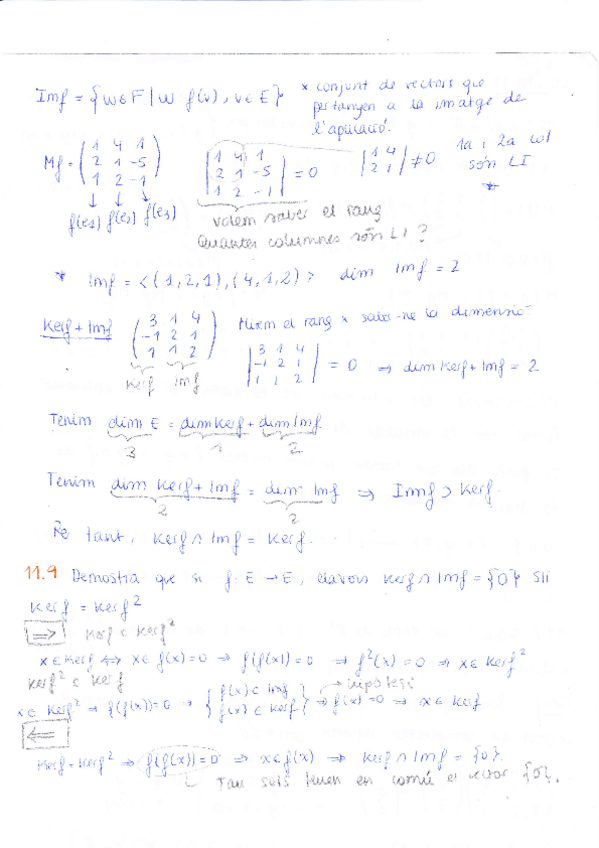 Imf = {w∈F | w f(v), v∈E} * conjunt de vectors que
pertanyen a la imatge de
l'aplicació.
Mf = (1 4 1 / 2 1 -5 / 1 2 -1) |1 4 1 / 2 1 -5 / 1 2 -1| = 0 |1 4 / 2 1| ≠ 0 1a i 2a col
són LI
*
↓ ↓ ↓
f(e1) f(e2) f(e3)
volem saber el rang
Quantes columnes són LI?
* Imf = <(1,2,1),(4,1,2)> dim Imf = 2
Kerf + Imf (3 1 4 / -1 2 1 / 1 1 2) Mirem el rang x saber-ne la dimensió
kerf Imf
|3 1 4 / -1 2 1 / 1 1 2| = 0 ⇒ dim Kerf + Imf = 2
Tenim dim E = dim Kerf + dim Imf
3 1 2
Tenim dim Kerf + Imf = dim Imf ⇒ Imf ⊃ Kerf.
2 2
Per tant, Kerf ∩ Imf = Kerf.
11.9 Demostra que si f: E → E, llavors Kerf ∩ Imf = {0} sii
Kerf = Kerf²
⇒ Kerf ⊂ Kerf²
x ∈ Kerf ⇔ x ∈ f(x) = 0 ⇒ f(f(x)) = 0 ⇒ f²(x) = 0 ⇒ x ∈ Kerf²
Kerf² ⊂ Kerf
→ hipòtesi
x ∈ Kerf² ⇒ f(f(x)) = 0 ⇒ {f(x) ∈ Imf / f(x) ∈ Kerf} ⇒ f(x) = 0 ⇒ x ∈ Kerf
⇐
Kerf = Kerf² ⇒ f(f(x)) = 0 ⇒ x ∈ f(x) ⇒ Kerf ∩ Imf = {0}.
Tan sols tenen en comú el vector {0}.